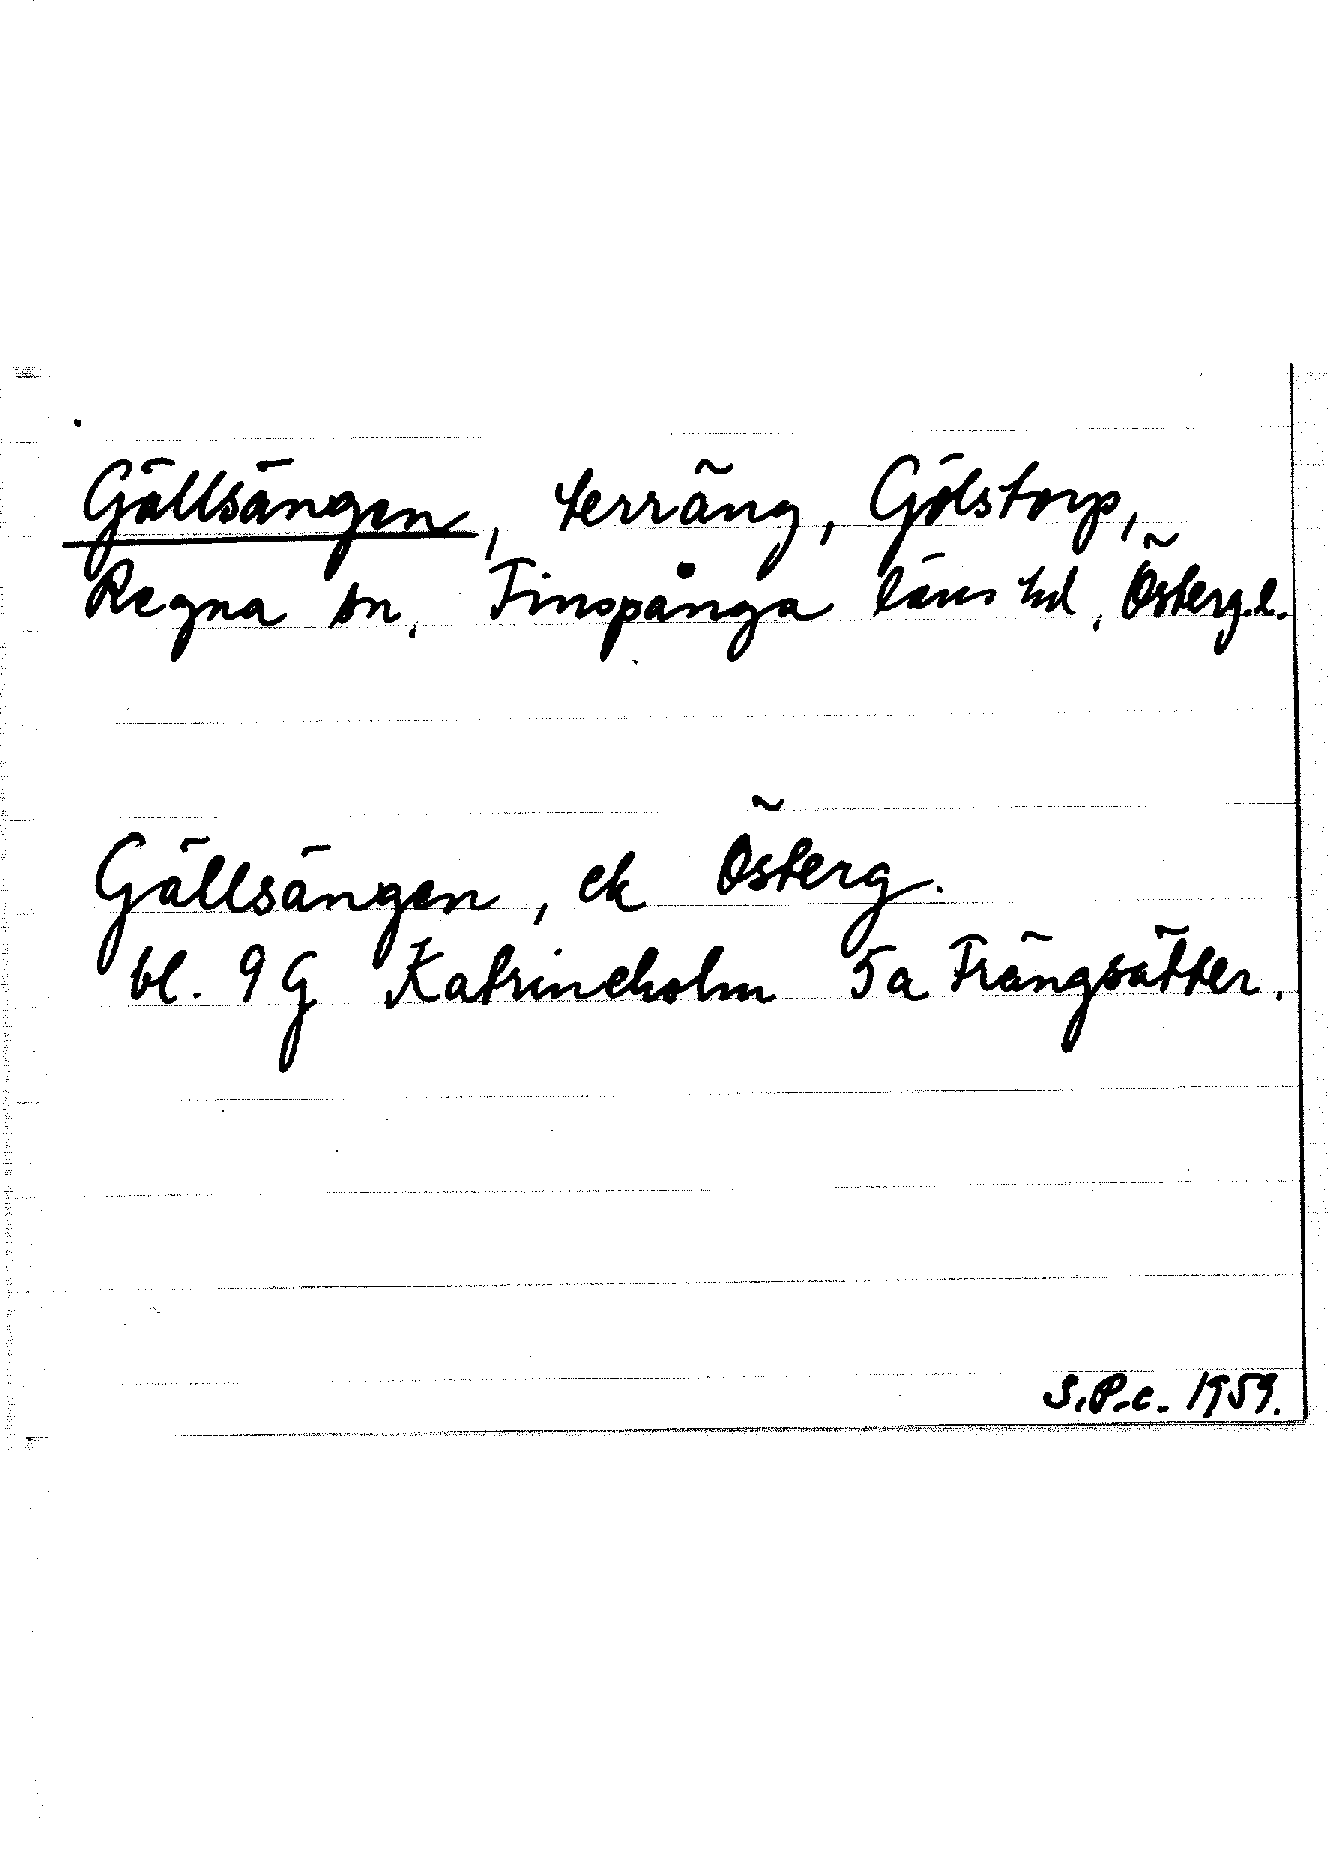 Gällsängen, terräng, Gölstorp,
Regna sn, Finspånga läns hd, Österg.l.
Gällsängen, ek Österg.
bl. 9G Katrineholm 5a Trängsätter.
S.P.c. 1959.